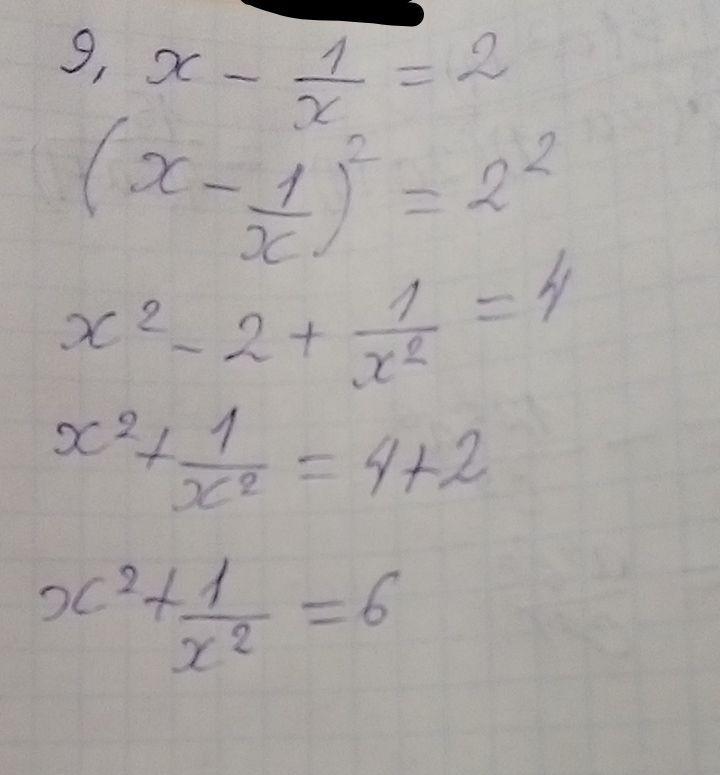 9, x - 1/x = 2
(x - 1/x)² = 2²
x² - 2 + 1/x² = 4
x² + 1/x² = 4+2
x² + 1/x² = 6